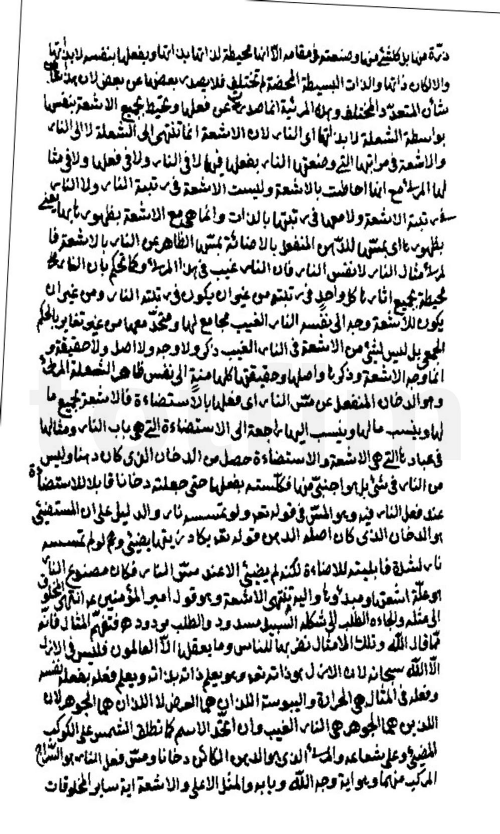 ذرّة منها بل كلشئ منها وصنعته فى مقامه الّا انها محيطة لذاتها بذاتها وبفعلها بنفسه لا بذاتها
والّا لكان ذاتها والذات البسيطة المحضة لم تختلف فلا يصدر بعضها عن بعض لان هذا
شأن المتعدّد المختلف وبهذه المرتبة انما صدرت عن فعلها ومحيط بجميع الاشعة بنفسها
بواسطة الشعلة لا بذاتها اى النار لان الاشعة انما تنتهى الى الشعلة لا الى النار
والاشعة فى مراتبها التى وضعتها النار بفعلها فيها لا فى النار ولا فى فعلها ولا فى مثا
لها المرئى مع انها احاطت بالاشعة وليست الاشعة فى رتبة النار ولا النار
فى رتبة الاشعة ولا معها فى رتبتها بالذات وانما هى مع الاشعة بظهورها بها يعنى
بظهورها اى بمسّها للدهن المنفعل بالاضائة بمسّها الظاهر من النار بالاشعة فا
لمرئى مثال النار لا نفس النار فان النار غيب فى هذا المرئى فكما تحكم بان النار
محيطة بجميع اثارها كل واحد فى رتبته من غير ان يكون فى رتبته النار ومن غير ان
يكون للاشعة وجه الى نفس النار الغيب مجامع لها ومتّحد معها من غير تغاير بالحكم
الجمعى بل ليس لشئ من الاشعة فى النار الغيب ذكر ولا وجه ولا اصل ولا حقيقة و
انما وجه الاشعة وذكرها واصلها وحقيقتها كلها منتهية الى نفس ظاهر الشعلة المرئى
وهو الدخان المنفعل عن مسّ النار اى فعلها بالاستضاءة فالاشعة بجميع ما
لها وينسب مالها وينسب اليها راجعة الى الاستضاءة التى هى باب النار ومثالها
فى عبادها التى هى الاشعة والاستضاءة حصل من الدخان الذى كان دهنا وليس
من النار فى شئ بل هو اجنبىّ منها فكلّسته بفعلها حتى جعلته دخانا قابلا للاستضاءة
عند فعل النار فيه وهو المسّ فى قوله تعه ولو لم تمسسه نار والدليل على ان المستضيئ
هو الدخان الذى كان اصله الدهن قوله تعه يكاد زيتها يضيئ ولو لم تمسسه
نار لشدة قابليته للاضاءة لكنه لم يضيئ الا عند مسّ النار فكان مصنوع النار
هو علّة اشعتها ومبدؤها واليه تنتهى الاشعة وهو قول امير المؤمنين ع انتهى المخلوق
الى مثله والجاءه الطلب الى شكله السبيل مسدود والطلب مردود ه فتفهّم المثال فانّه
كما قال الله وتلك الامثال نضربها للناس وما يعقلها الّا العالمون فليس فى الازل
الّا الله سبحانه لان الازل هو ذاته تعه وهو يعلم ذاته بذاته ويعلم فعله بفعله بنفسه
وفعله فى المثال هى الحرارة واليبوسة اللذان هما العرض لا اللذان هما الجوهر لان
اللذين هما الجوهر هى النار الغيب وان اتّحد الاسم كما تطلق الشمس على الكوكب
المضيئ وعلى شعاعه والمرئى الذى هو الدهن الكائن دخانا ومسّ فعل النار هو السّراج
المركب منهما وهو اية وجه الله وبابه والمثل الاعلى والاشعة اية ساير المخلوقات